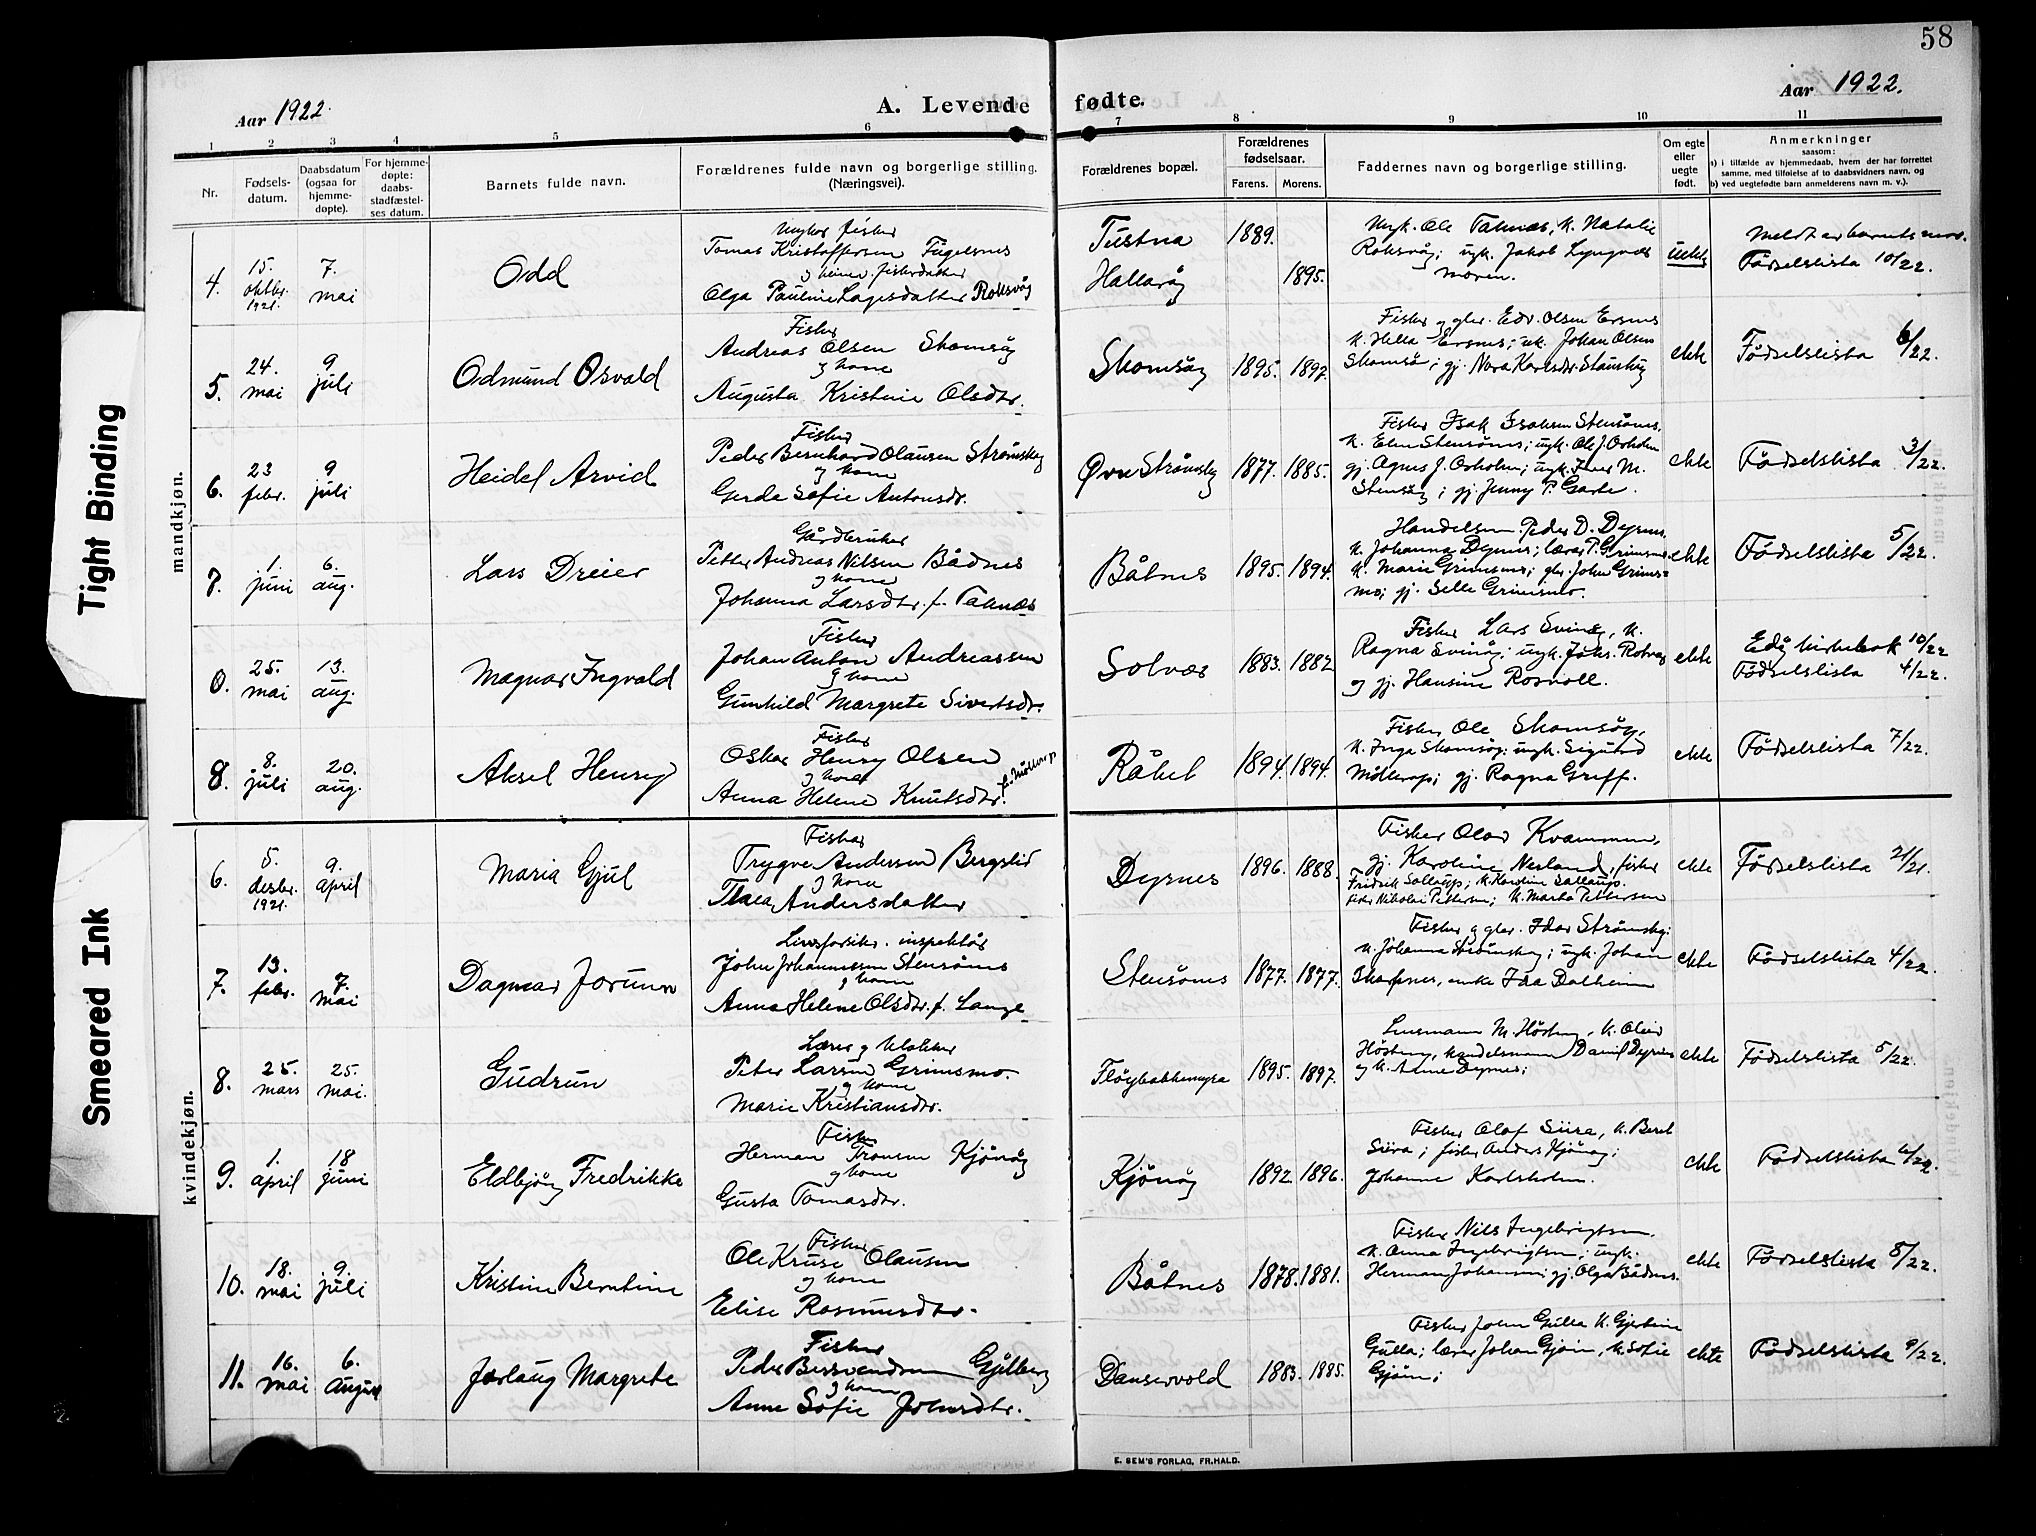 58
Aar 1922.
A. Levende fødte.
Aar 1922.
1 2 3 4 5 6 7 8 9 10 11
Nr.
Fødsels-
datum.
Daabsdatum
(ogsaa for
hjemme-
døpte).
For hjemme-
døpte:
daabs-
stadfæstel-
ses datum.
Barnets fulde navn.
Forældrenes fulde navn og borgerlige stilling.
(Næringsvei).
Forældrenes bopæl.
Forældrenes
fødselsaar.
Farens. Morens.
Faddernes navn og borgerlige stilling.
Om egte
eller
uegte
født.
Anmerkninger
saasom:
a) i tilfælde av hjemmedaab, hvem der har forrettet
samme, med tilføielse af to daabsvidners navn, og
b) ved uegtefødte barn anmelderens navn m. v.).
Tight Binding
Smeared Ink
mandkjøn.
4. 15. oktbr. 1921. 7. mai
Odd
Ungkar fisker
Tomas Kristoffersen Fugelsnes
og kvinne fiskerdatter
Olga Pauline Lagesdatter Roksvåg
Tustna 1889.
Hallaråg 1895.
Ungk. Ole Taknæs, k. Natalie
Roksvåg; ungk. Jakob Lyngvær
moren.
uekte
Meldt av barnets mor.
Fødselslista 10/22.
5. 24. mai 9 juli
Odmund Osvald
Fisker
Andreas Olsen Skomsøg
og kone
Augusta Kristine Olsdtr.
Skomsøg 1895. 1897.
Fisker og gbr. Edv. Olsen Ersnes
k. Hella Ersnes; uk. Johan Olsen
Skomsø; gj. Nora Karlsdtr.
ekte
Fødselslista 6/22.
6. 23 febr. 9 juli
Heidel Arvid
Fisker
Peder Bernhard Olausen Strømskag
og kone
Gerda Sofie Antonsdr.
Øvre Strømskag 1877. 1885.
Fisker Isak Isaksen Stensønes.
k. Elen Stensønes; ungk. Ole J. Orholm
gj. Agnes J. Orholm; ungk. Iver M.
Stensøg; gj. Jenny P. Garte.
ekte
Fødselslista 3/22.
7. 1. juni 6. aug.
Lars Dreier
Gårdbruker
Petter Andreas Nilsen Bådnes
og kone
Johanna Larsdtr. f. Taknæs
Båtnes 1895. 1894.
Handelsm. Peder D. Dyrnes,
k. Johanna Dyrnes; lærer P. Grimsmo
k. Marie Grimsmo; gbr. John Grims-
mo; gj. Selle Grimsmo.
ekte
Fødselslista 5/22.
0. 25. mai 13. aug.
Magnar Ingvald
Fisker
Johan Anton Andreassen
og kone
Gunhild Margrete Sivertsdr.
Solvær 1883. 1882
Fisker Lars Svinøg, k.
Ragna Svinøg; ungk. Johs. Rotvåg
og gj. Hansine Rosvoll.
ekte
Edøy kirkebok 10/22
Fødselslista 4/22.
8. 8. juli 20. aug.
Aksel Henry
Fisker
Oskar Henry Olsen
og kone
Anna Helene Knutsdtr. f. Møllerop
Råket 1894. 1894.
Fisker Ole Skomsøg,
k. Inga Skomsøg; ungk. Sigurd
Møllerop; gj. Ragna Greff.
ekte
Fødselslista 7/22.
kvindekjøn.
6. 5. desbr. 1921. 9. april
Maria Gjul
Fisker
Trygve Andersen Bergslid
og kone
Thea Andersdatter
Dyrnes 1896. 1888.
Fisker Olav Kvammen,
gj. Karoline Nesland, fisker
Fredrik Sollaupp; k. Karoline Sollaupp.
fisker Nikolai Pettersen; k. Marta Pettersen
ekte
Fødselslista 21/21.
7. 13. febr. 7. mai
Dagmar Jorunn
Livsforsikr. inspektør
John Johannessen Stensønes
og kone
Anna Helene Olsdtr. f. Lange
Stensønes 1877. 1877.
Fisker og gbr. Idar Strømskag;
k. Johanna Strømskag; ungk. Johan
Skarpnes, enke Ida Dalheim
ekte
Fødselslista 4/22.
8. 25. mars 25. mai.
Gudrun
Lærer og klokker
Peter Larsen Grimsmo.
og kone
Marie Kristiansdtr.
Fløybakkmyra 1895. 1897.
Lensmann M. Høsteng, k.
Høsteng, handelsmann Daniel Dyrnes
og k. Anne Dyrnes;
ekte
Fødselslista 5/22.
9. 1. april 18 juni
Eldbjørg Fredrikke
Fisker
Herman Tronsen Kjønøg
og kone
Gusta Tomasdtr.
Kjønøg 1892 1896.
Fisker Olaf Siira, k. Beret
Siira; fisker Anders Kjønøg;
Johanne Karlsholm.
ekte
Fødselslista 6/22.
10. 18. mai 9. juli
Kristine Berntine
Fisker
Ole Kruse Olausen
og kone
Elise Rasmusdtr.
Båtnes 1878. 1881.
Fisker Nils Ingebrigtsen.
k. Anna Ingebrigtsen; ungk.
Herman Johansen; gj. Olga Bådnes.
ekte
Fødselslista 8/22.
11. 16. mai 6. august
Jorlaug Margrete
Fisker
Peder Berrvendsen Gjelberg
og kone
Anne Sofie Johnsdtr.
Danservold 1883. 1885.
Fisker John Gulla k. Gjertine
Gulla; lærer Johan Gjøin, k. Sofie
Gjøin;
ekte
Fødselslista 9/22.
E. SEM'S FORLAG, FR.HALD.